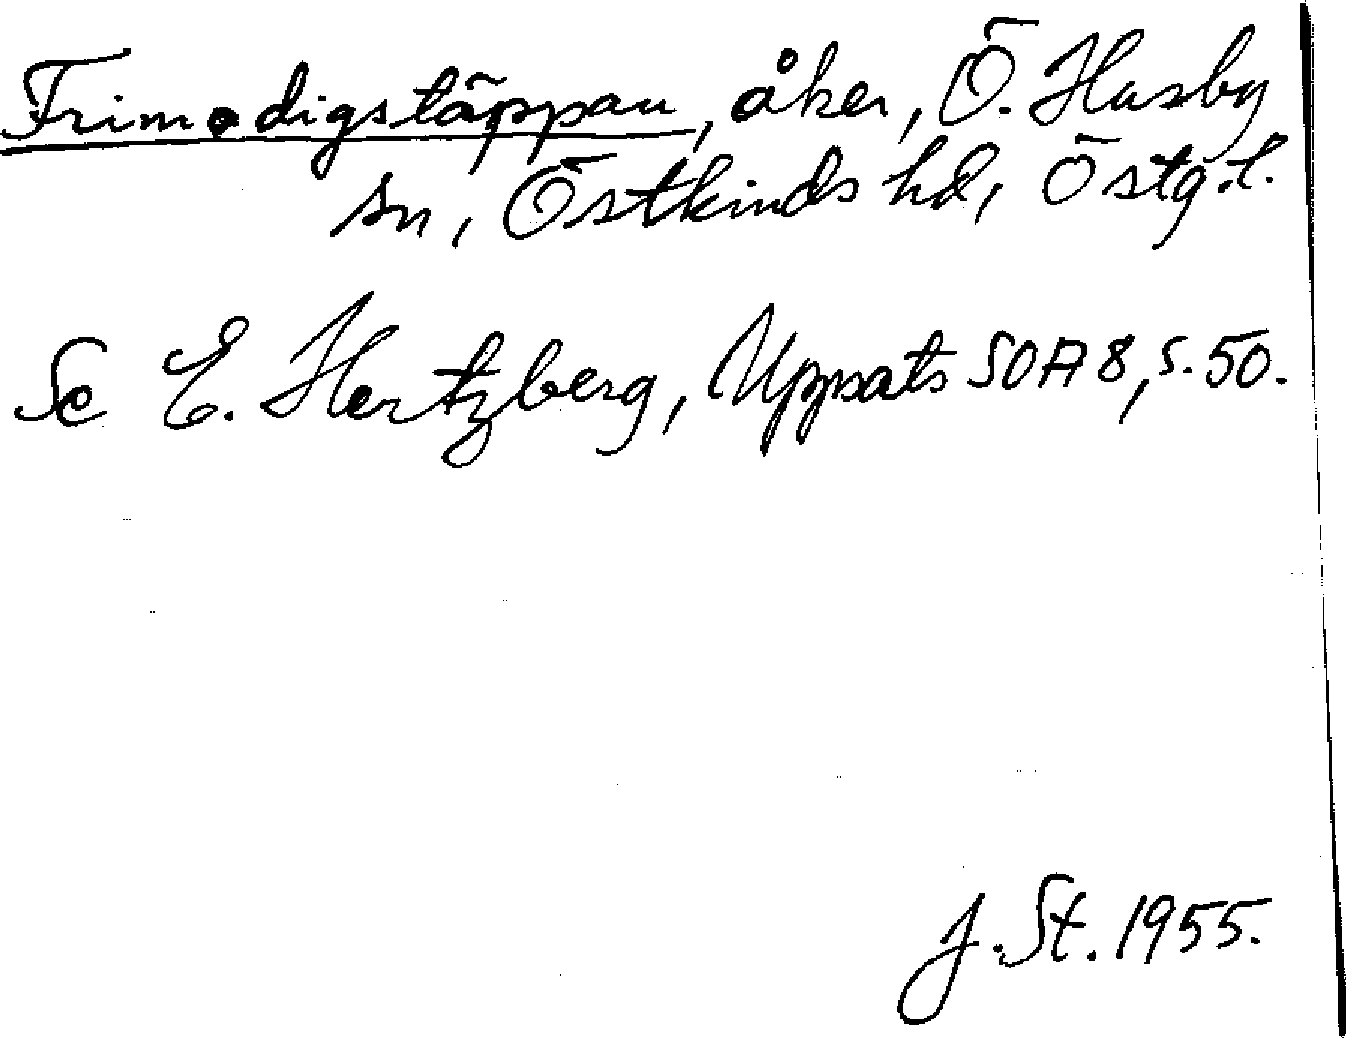 Frimodigstäppan, åker, Ö. Husby
sn, Östkinds hd, Östg.l.
Se E. Hertzberg, Uppsats SOA 8, s. 50.
J. St. 1955.